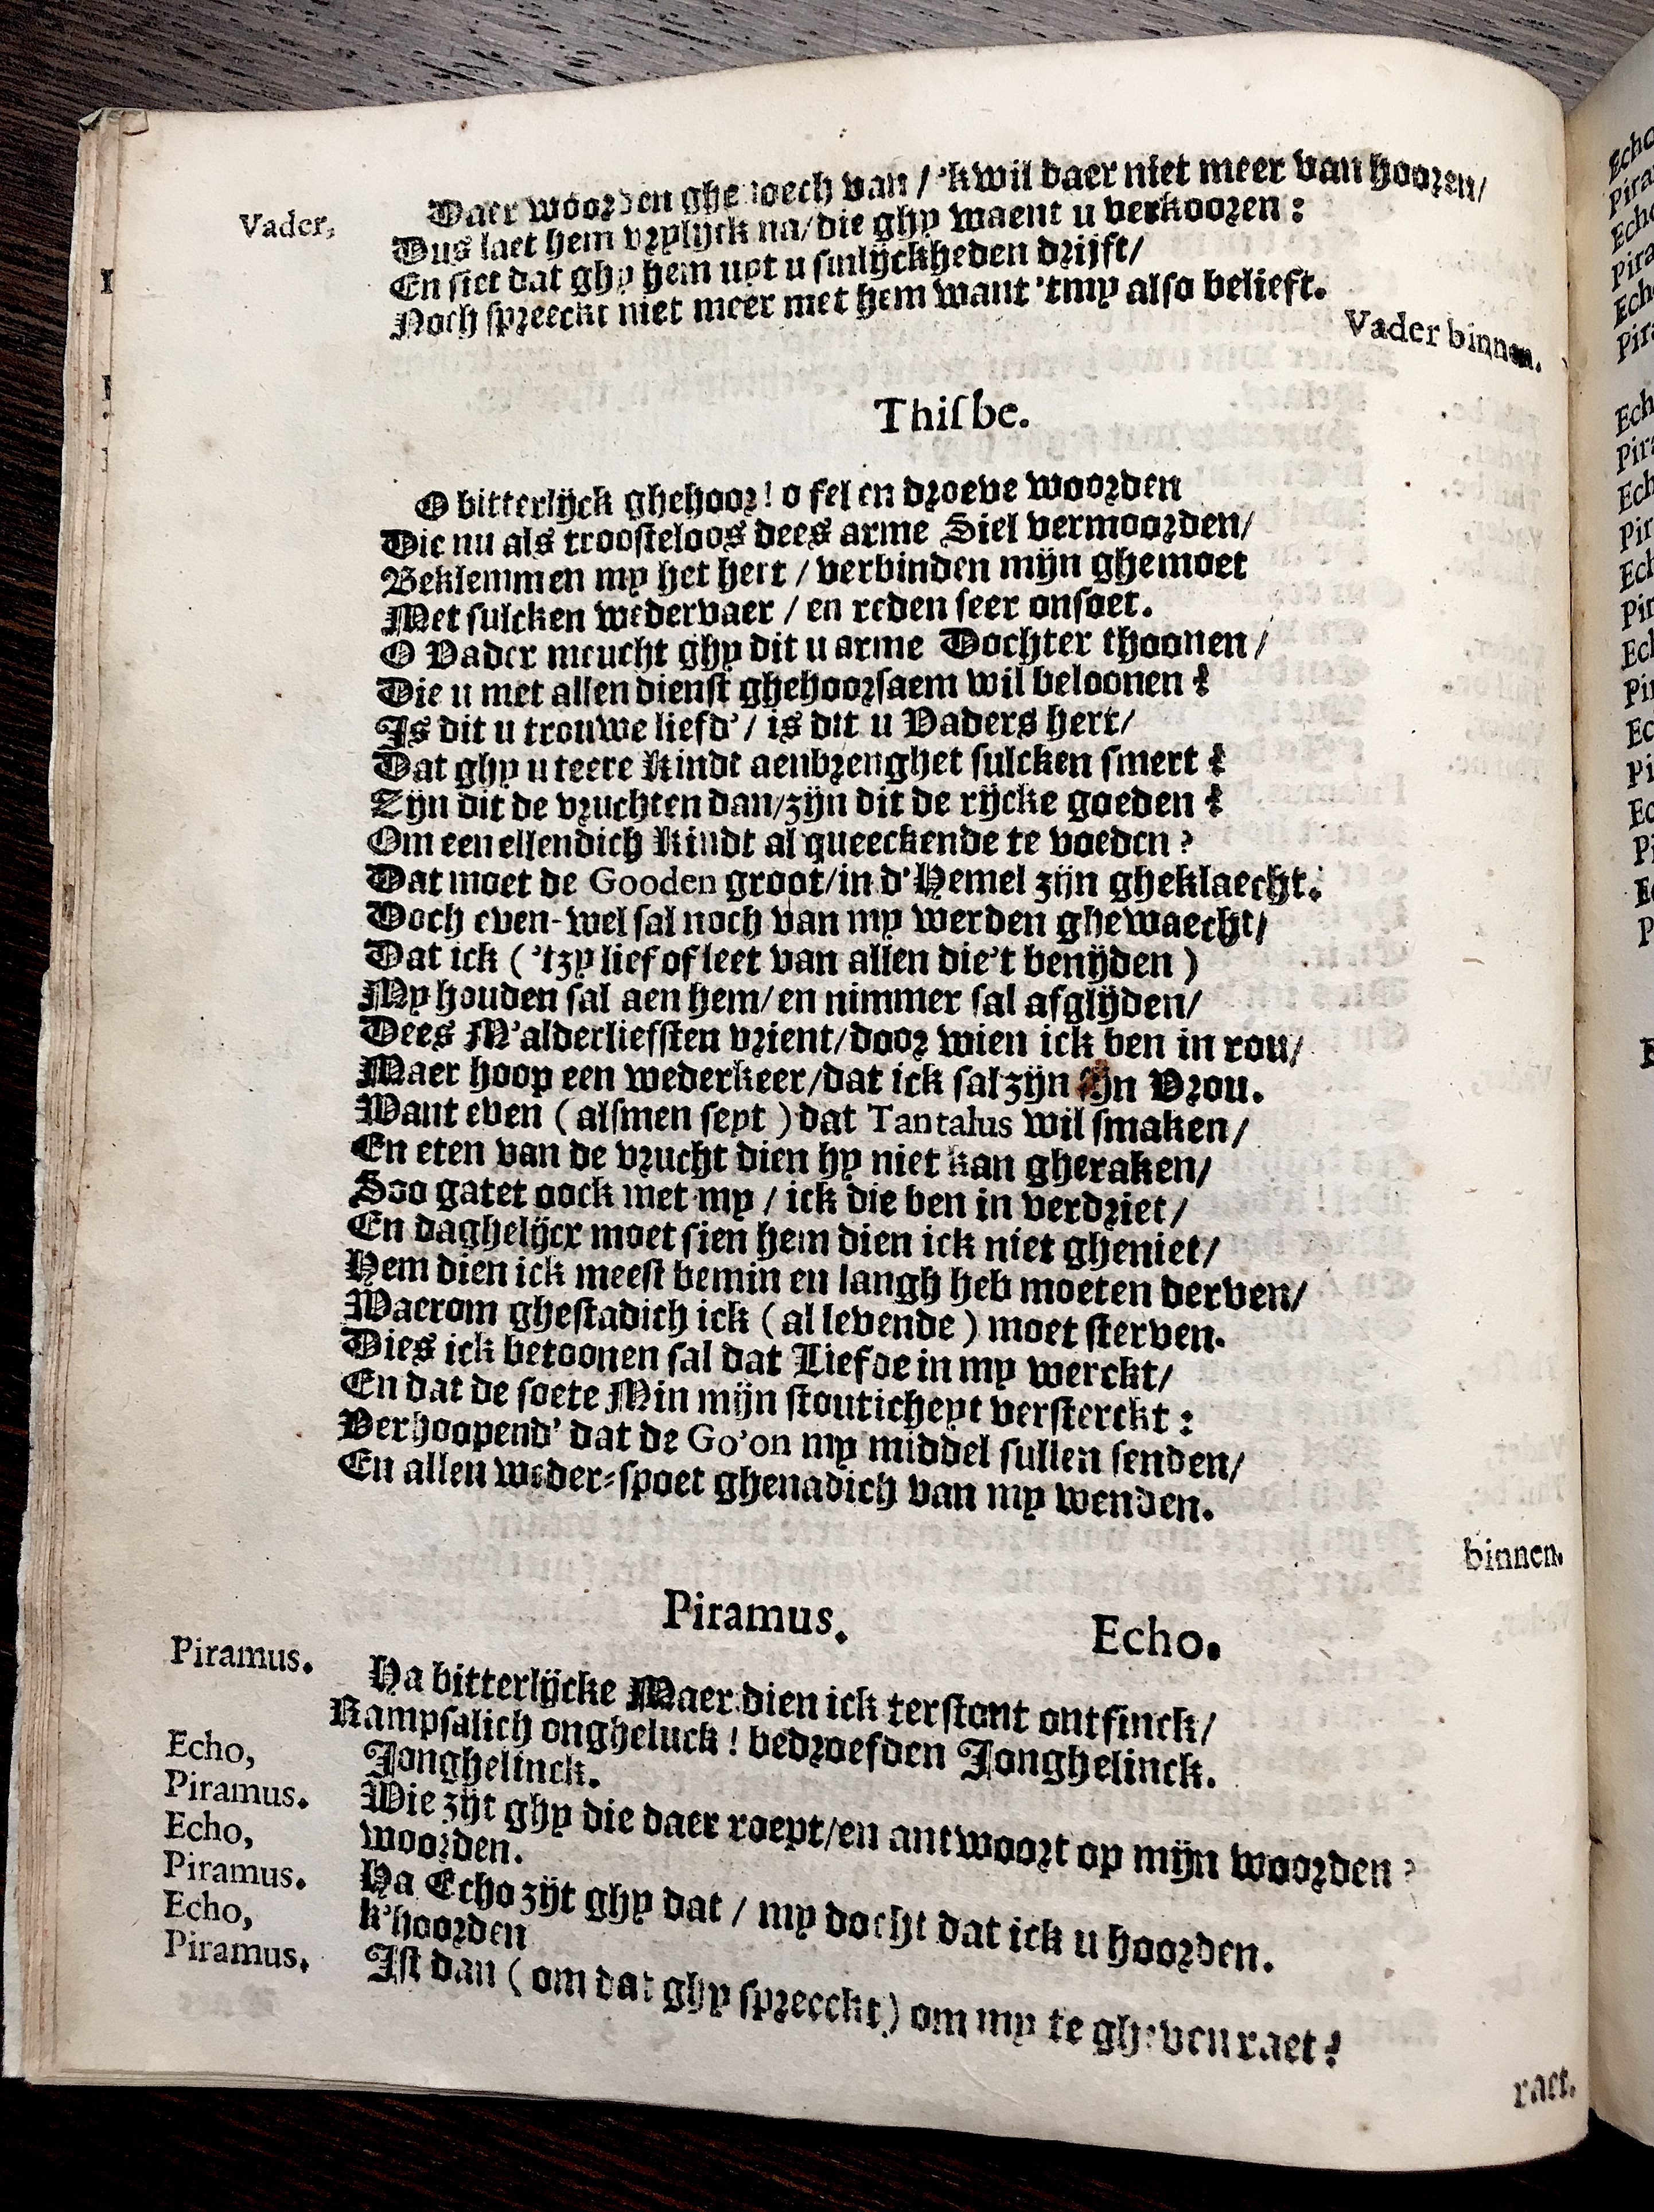 Vader, Daer woorden ghenoech van / 'k wil daer niet meer van hooren/
Dus laet hem vrylijck na/die ghy waent u verkooren :
En siet dat ghy hem uyt u sinlijckheden drijft/
Noch spreeckt niet meer met hem want 'tmy also belieft.
Vader binnen.
Thisbe.
O bitterlijck ghehoor! o fel en droeve woorden
Die nu als troosteloos dees arme Siel vermoorden/
Beklemmen my het hert / verbinden mijn ghemoet
Met sulcken wedervaer / en reden seer onsoet.
O Vader meucht ghy dit u arme Dochter thoonen/
Die u met allen dienst ghehoorsaem wil beloonen ?
Is dit u trouwe liefd' / is dit u Vaders hert/
Dat ghy u teere Kindt aenbrenghet sulcken smert ?
Zijn dit de vruchten dan/zijn dit de rijcke goeden ?
Om een ellendich Kindt al queeckende te voeden ?
Dat moet de Gooden groot/in d'Hemel zijn gheklaecht.
Doch even-wel sal noch van my werden ghewaecht/
Dat ick ( 'tzy lief of leet van allen die't benijden )
My houden sal aen hem/en nimmer sal afglijden/
Dees M'alderliefsten vrient/door wien ick ben in rou/
Maer hoop een wederkeer/dat ick sal zijn sijn Vrou.
Want even ( alsmen seyt ) dat Tantalus wil smaken/
En eten van de vrucht dien hy niet kan gheraken/
Soo gatet oock met my / ick die ben in verdriet/
En daghelijcx moet sien hem dien ick niet gheniet/
Hem dien ick meest bemin en langh heb moeten derven/
Waerom ghestadich ick ( al levende ) moet sterven.
Dies ick betoonen sal dat Liefde in my werckt/
En dat de soete Min mijn stouticheyt versterckt :
Verhoopend' dat de Go'on my middel sullen senden/
En allen weder-spoet ghenadich van my wenden.
binnen.
Piramus. Echo.
Piramus. Ha bitterlijcke Maer dien ick terstont ontfinck/
Rampsalich ongheluck ! bedroefden Jonghelinck.
Echo, Jonghelinck.
Piramus. Wie zijt ghy die daer roept/en antwoort op mijn woorden ?
Echo, woorden.
Piramus. Ha Echo zijt ghy dat / my docht dat ick u hoorden.
Echo, k'hoorden
Piramus. Ist dan ( om dat ghy spreeckt ) om my te gheven raet ?
raet.